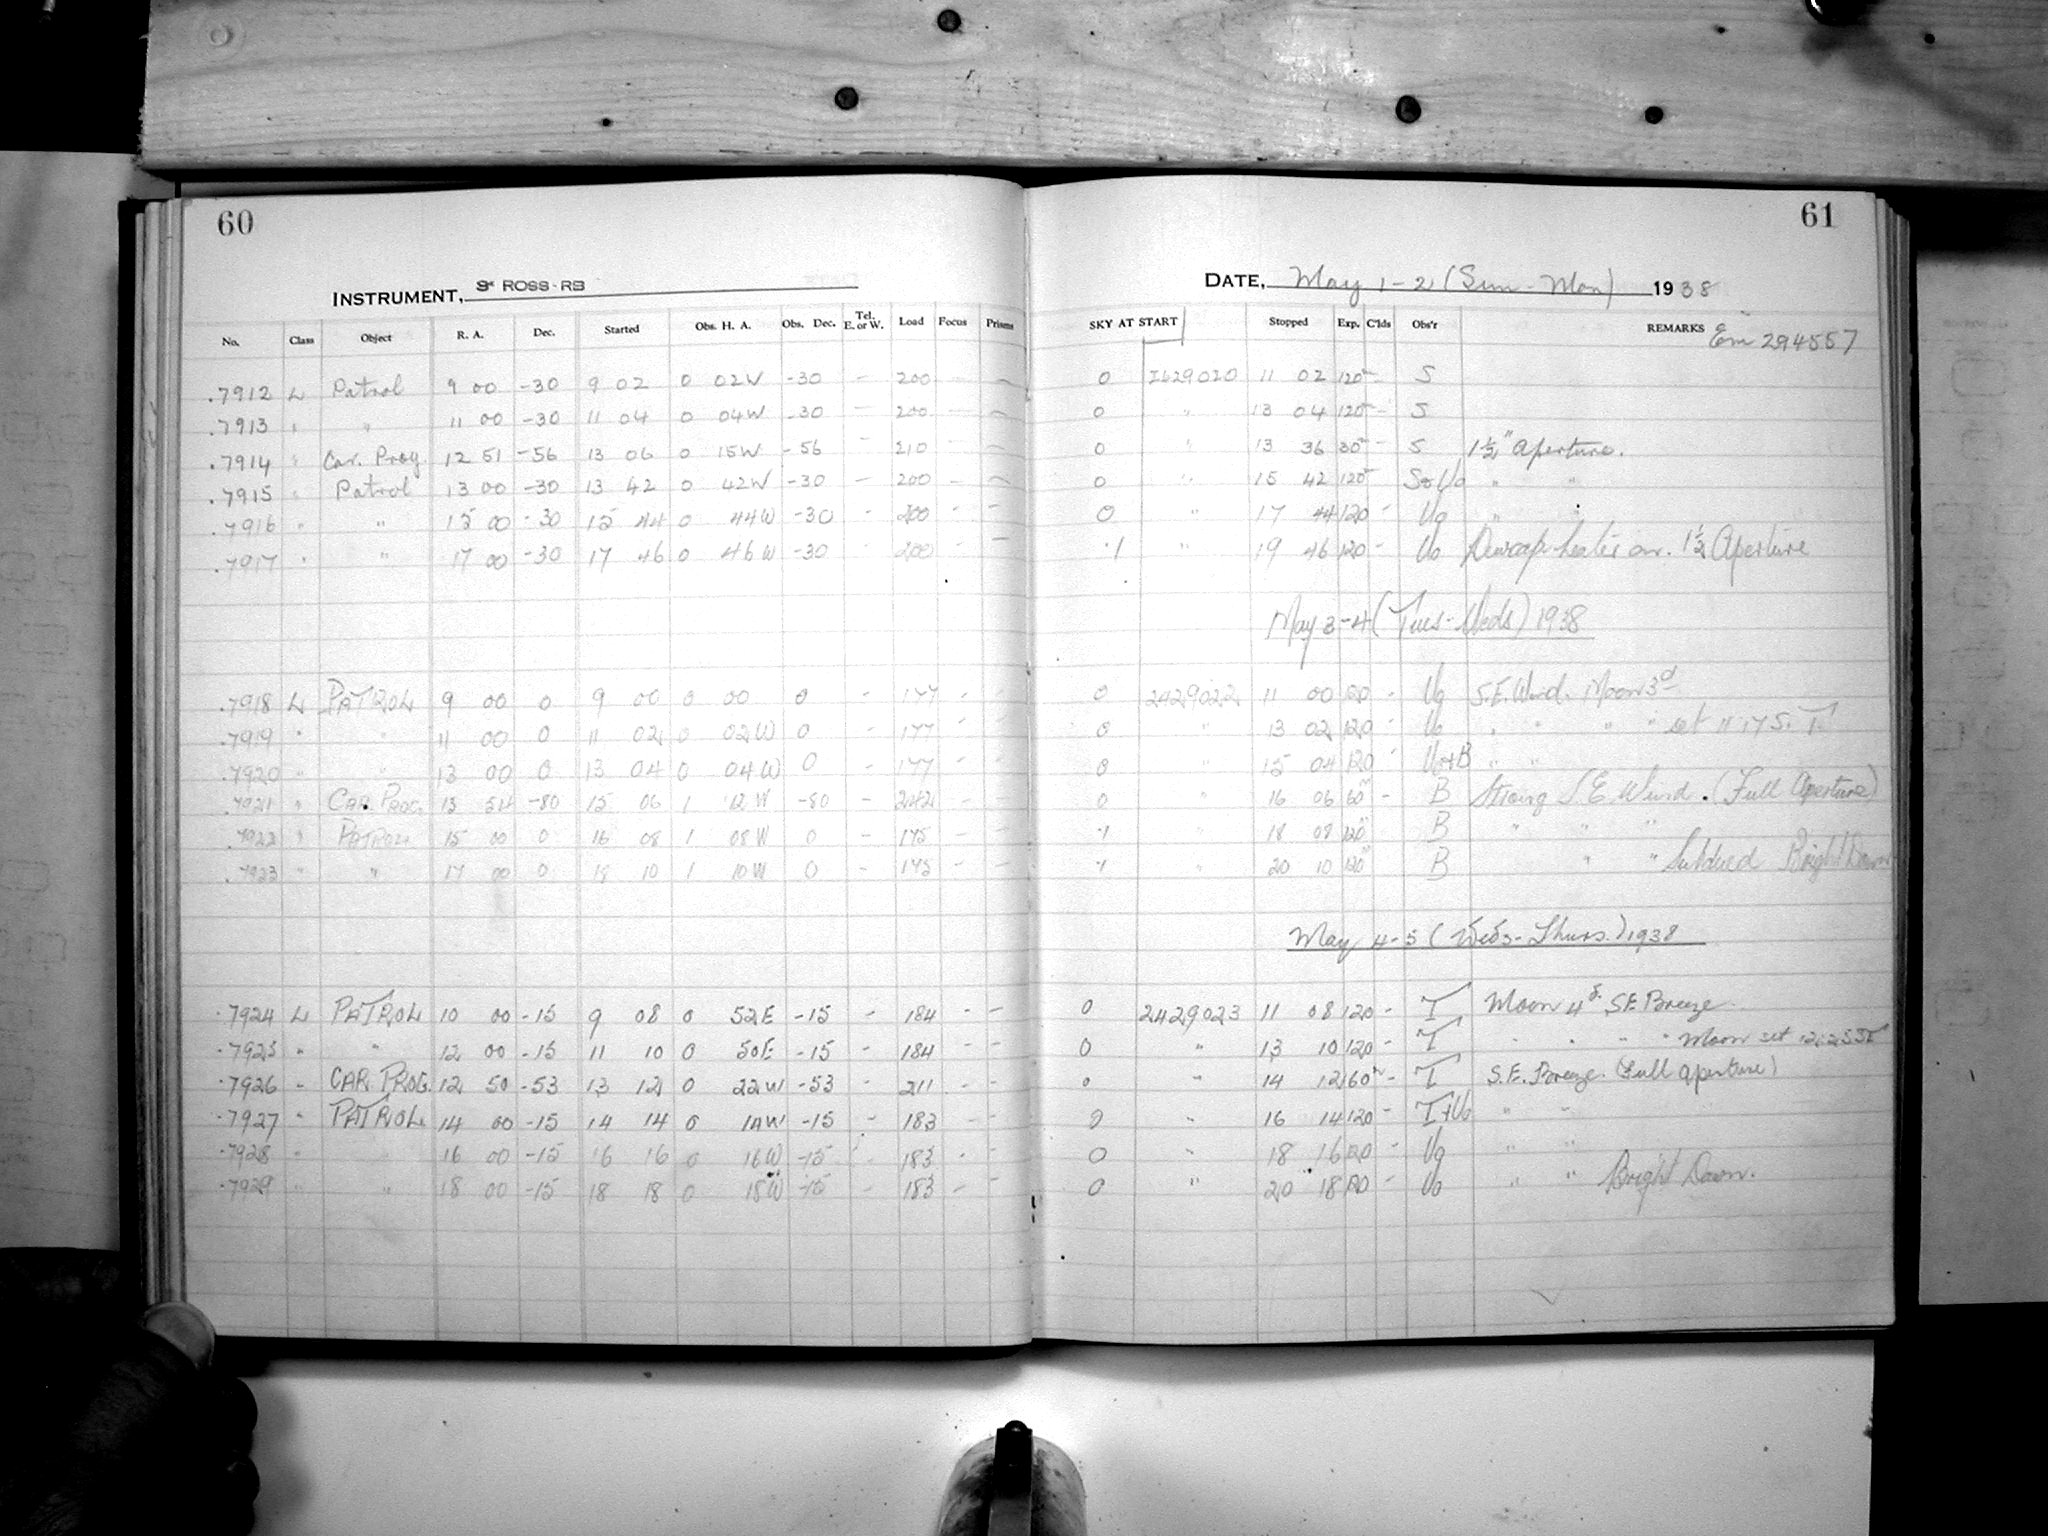 60
INSTRUMENT, 3" ROSS-RB
No. Class Object R. A. Dec. Started Obs. H. A. Obs. Dec. Tel. E. or W. Load Focus Prisms
.7912 L Patrol 9 00 -30 9 02 0 02W -30 - 200 - -
.7913 " " 11 00 -30 11 04 0 04W -30 - 200 - -
.7914 " Car. Prog. 12 51 -56 13 06 0 15W -56 - 210 - -
.7915 " Patrol 13 00 -30 13 42 0 42W -30 - 200 - -
.7916 " " 15 00 -30 15 44 0 44W -30 - 200 - -
.7917 " " 17 00 -30 17 46 0 46W -30 - 200 -
.7918 L PATROL 9 00 0 9 00 0 00 0 - 177 - -
.7919 " " 11 00 0 11 02 0 02W 0 - 177 - -
.7920 " " 13 00 0 13 04 0 04W 0 - 177 - -
.7921 " CAR PROG. 13 54 -80 15 06 1 12W -80 - 242 - -
.7922 " PATROL 15 00 0 16 08 1 08W 0 - 175 - -
.7923 " " 17 00 0 18 10 1 10W 0 - 175 - -
.7924 L PATROL 10 00 -15 9 08 0 52E -15 - 184 - -
.7925 " " 12 00 -15 11 10 0 50E -15 - 184 - -
.7926 " CAR PROG. 12 50 -53 13 12 0 22W -53 - 211 - -
.7927 " PATROL 14 00 -15 14 14 0 14W -15 - 183 - -
.7928 " " 16 00 -15 16 16 0 16W -15 - 183 - -
.7929 " " 18 00 -15 18 18 0 18W -15 - 183 - -
61
DATE, May 1-2 (Sun-Mon) 1938
SKY AT START Stopped Exp. C'lds Obs'r REMARKS Em 294557
0 2429020 11 02 120 - S
0 " 13 04 120 - S
0 " 13 36 30 - S 1½" Aperture.
0 " 15 42 120 S & Uo " "
0 " 17 44 120 - Uo " "
1 " 19 46 120 - Uo Dewcap-heater on. 1½ Aperture
May 3-4 (Tues-Weds) 1938
0 2429022 11 00 120 - Uo S.E. Wind. Moon 3d
0 " 13 02 120 Uo " " " set 11 17 S.T.
0 " 15 04 120 Uo+B " "
0 " 16 06 60 - B Strong S E Wind. (Full Aperture)
1 " 18 08 120 B " " "
1 " 20 10 120 B " " Subdued Bright Dawn
May 4-5 (Weds-Thurs.) 1938
0 2429023 11 08 120 - T Moon 4d. S.E. Breeze.
0 " 13 10 120 - T " " " " Moon set
0 " 14 12 60 - T S.E. Breeze. (Full aperture)
0 " 16 14 120 - T+Uo " "
0 " 18 16 120 - Uo " "
0 " 20 18 120 - Uo " " Bright Dawn.